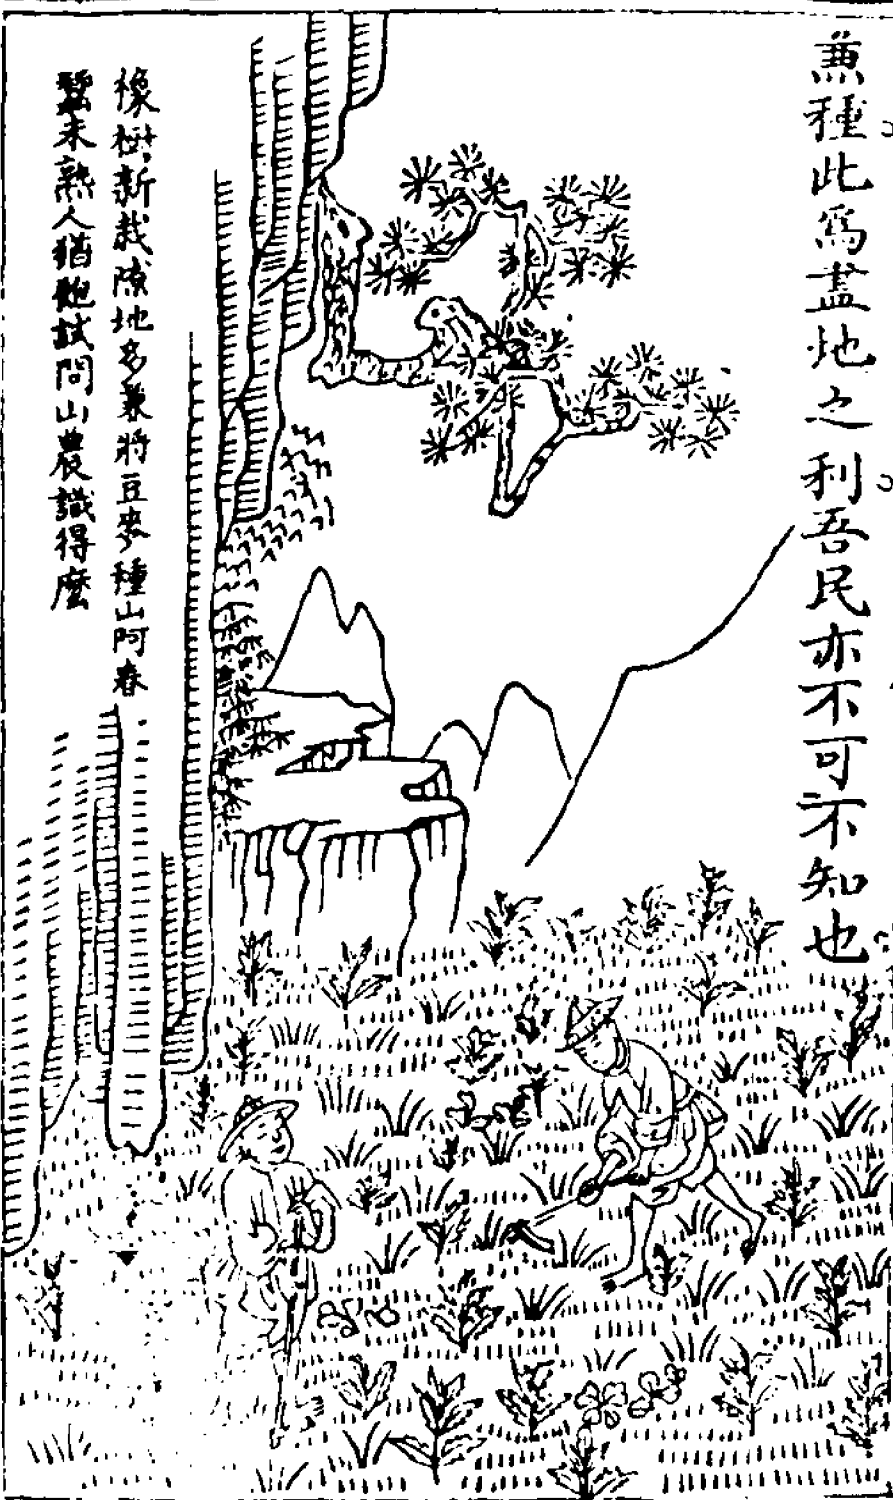 兼種此爲盡地之利吾民亦不可不知也
橡樹新栽隙地多兼將豆麥種山阿春
蠶未熟人猶飽試問山農識得麼